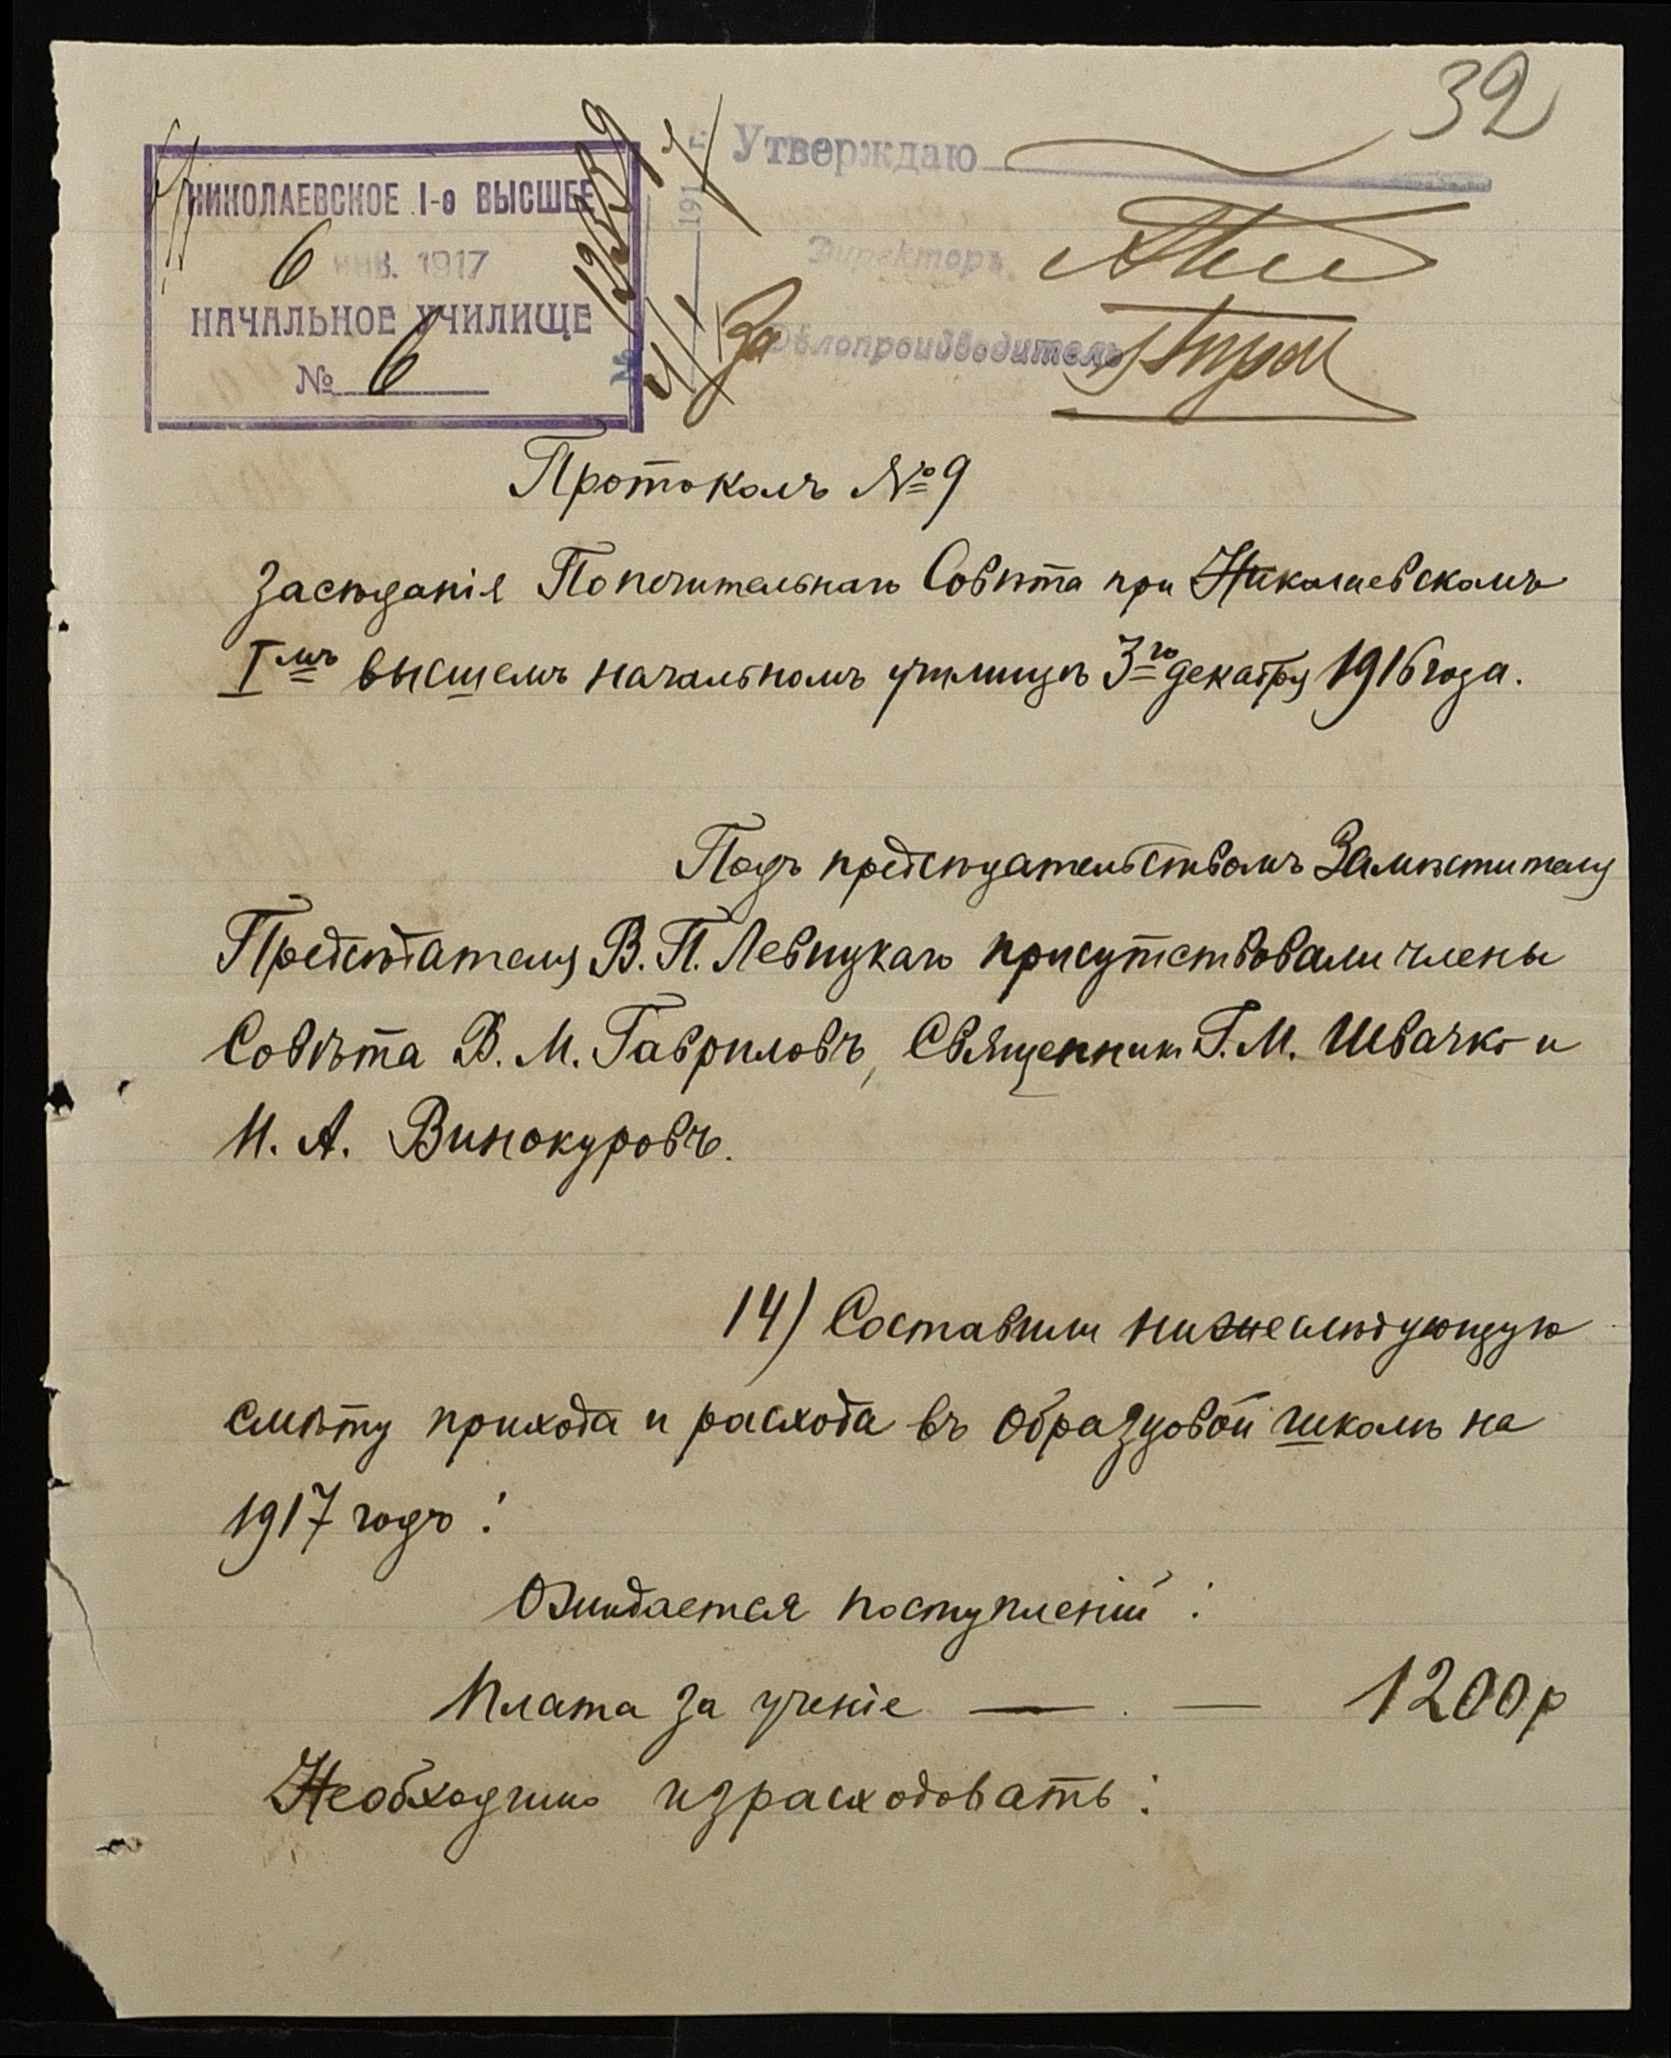 32
НИКОЛАЕВСКОЕ I-е ВЫСШЕЕ
6 янв. 1917
НАЧАЛЬНОЕ УЧИЛИЩЕ
№ 6
Утверждаю
Директоръ
За Дѣлопроизводитель
191 г.
№
Протоколъ № 9
Засѣданія Попечительнаго Совѣта при Николаевскомъ
I мъ высшемъ начальномъ училищѣ 3 го декабря 1916 года.
Подъ предсѣдательствомъ Замѣстителя
Предсѣдателя В. П. Левицкаго присутствовали члены
Совѣта В. М. Гавриловъ, Священникъ Г. М. Швачко и
И. А. Винокуровъ.
14) Составили нижеслѣдующую
смѣту прихода и расхода въ образцовой школѣ на
1917 годъ:
Ожидается поступленій:
Плата за ученіе — — 1200 р
Необходимо израсходовать: